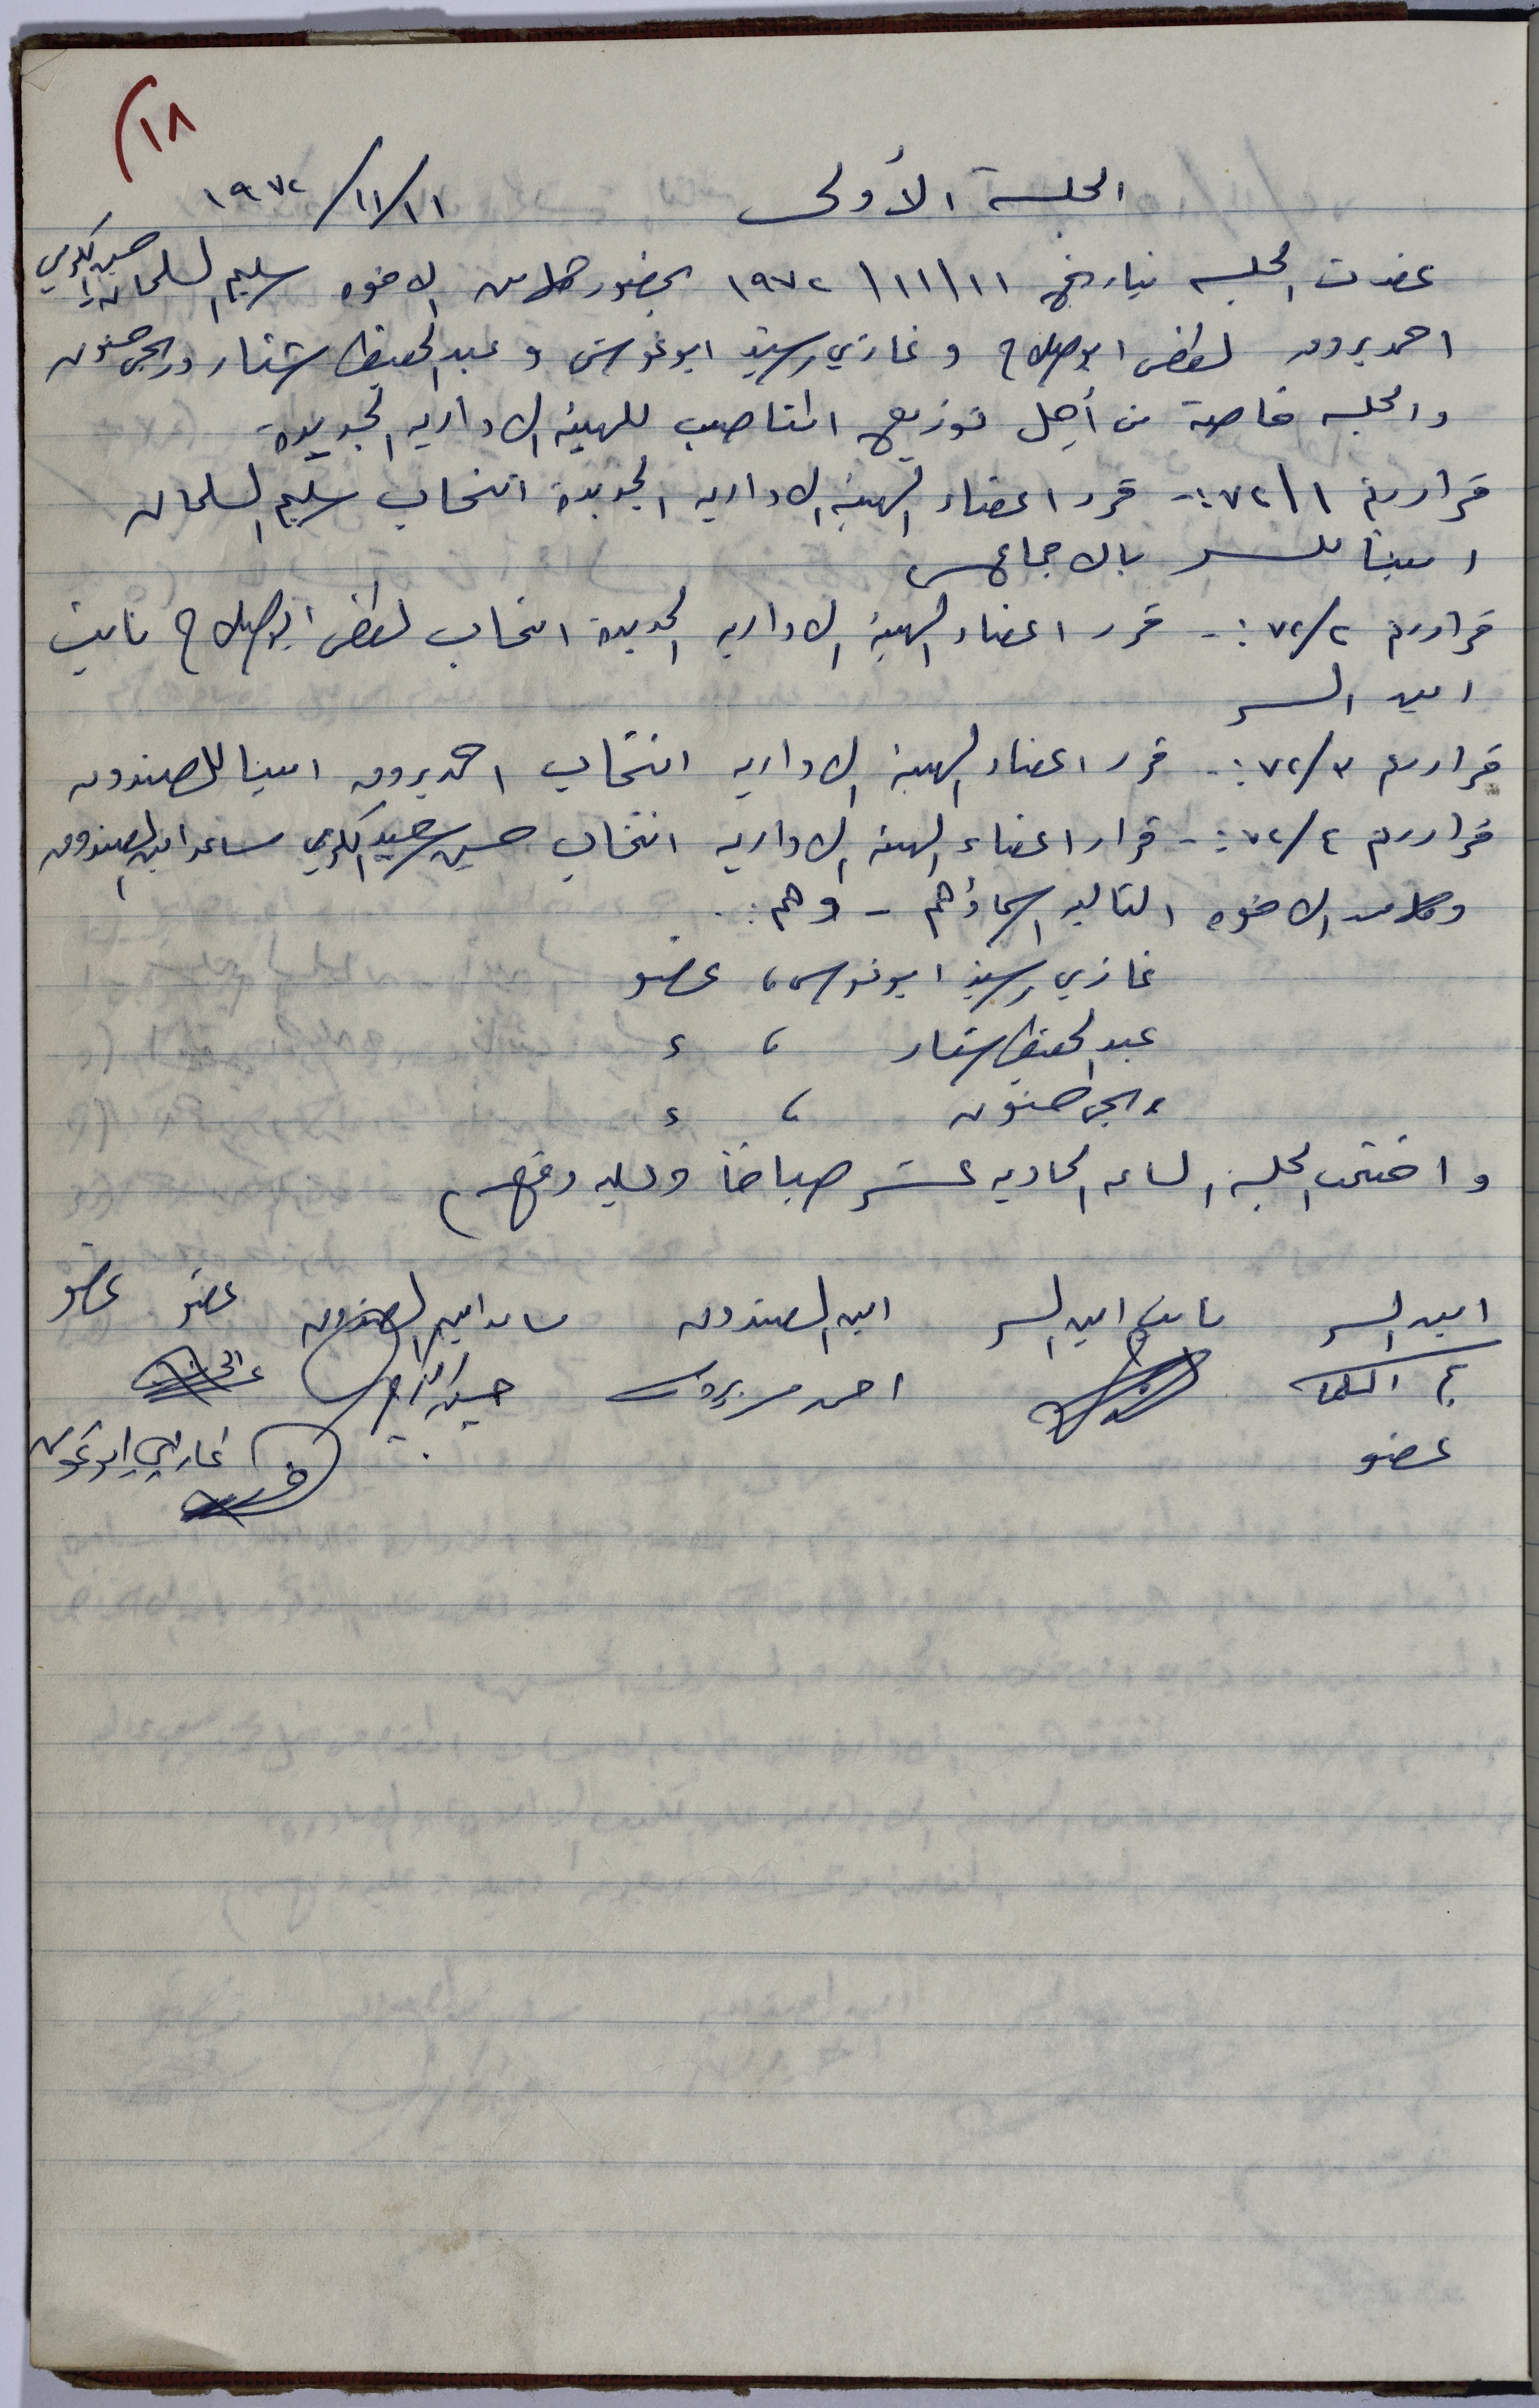 ١٨)
الجلسة الأولى ١١/١١/١٩٧٢
عقدت الجلسه بتاريخ ١١/١١/١٩٧٢ بحضور كلا من الاخوه سليم السلمان و حسين الكرمي
احمد بروق لطفي ابو صلاح و غازي رشيد ابو غوش و عبد الحفيظ اشتار وربحي حنون
والجلسه خاصة من أجل توزيع المناصب للهيئه الاداريه الجديدة
قرار رقم ٧٢/١ :- قرر اعضاء الهيئه الاداريه الجديدة انتخاب سليم السلمان
امينا للسر بالاجماع
قرار رقم ٧٢/٢ :- قرر اعضاء الهيئه الاداريه الجديدة انتخاب لطفي ابو صلاح نائب
امين السر
قرار رقم ٧٢/٣ :- قرر اعضاء الهيئه الاداريه انتخاب احمد بروق امينا للصندوق
قرار رقم ٧٢/٤ :- قرار اعضاء الهيئه الاداريه انتخاب حسين سعيد الكرمي مساعد امين الصندوق
وكلا من الاخوه التاليه اسماؤهم - وهم :
غازي رشيد ابو غوش ، عضو
عبد الحفيظ اشتار ، ء
ربحي حنون ، ء
واختتمت الجلسه الساعه الحاديه عشر صباحاً وعليه وقعهم
امين السر نائب امين السر امين الصندوق مساعد امين الصندوق عضو عضو
السلمان احمد بروق حسين الكرمي
عضو غازي ابو غوش